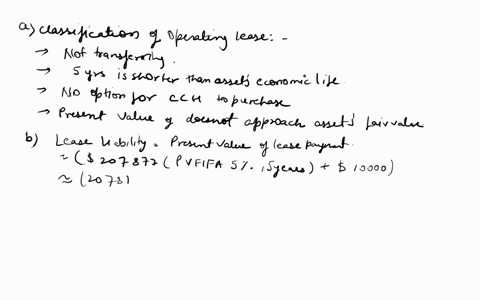 a) Classifications of Operating lease: -
→ Not transfering.
→ 5 yrs is shorter than asset's economic life.
→ No option for CCH to purchase
→ Present value of doesnot approach asset's fair value
b) Lease liability = Present Value of lease payment.
≈ ($207877 (PVFIFA 5%, 5years) + $10000)
≈ (2078)